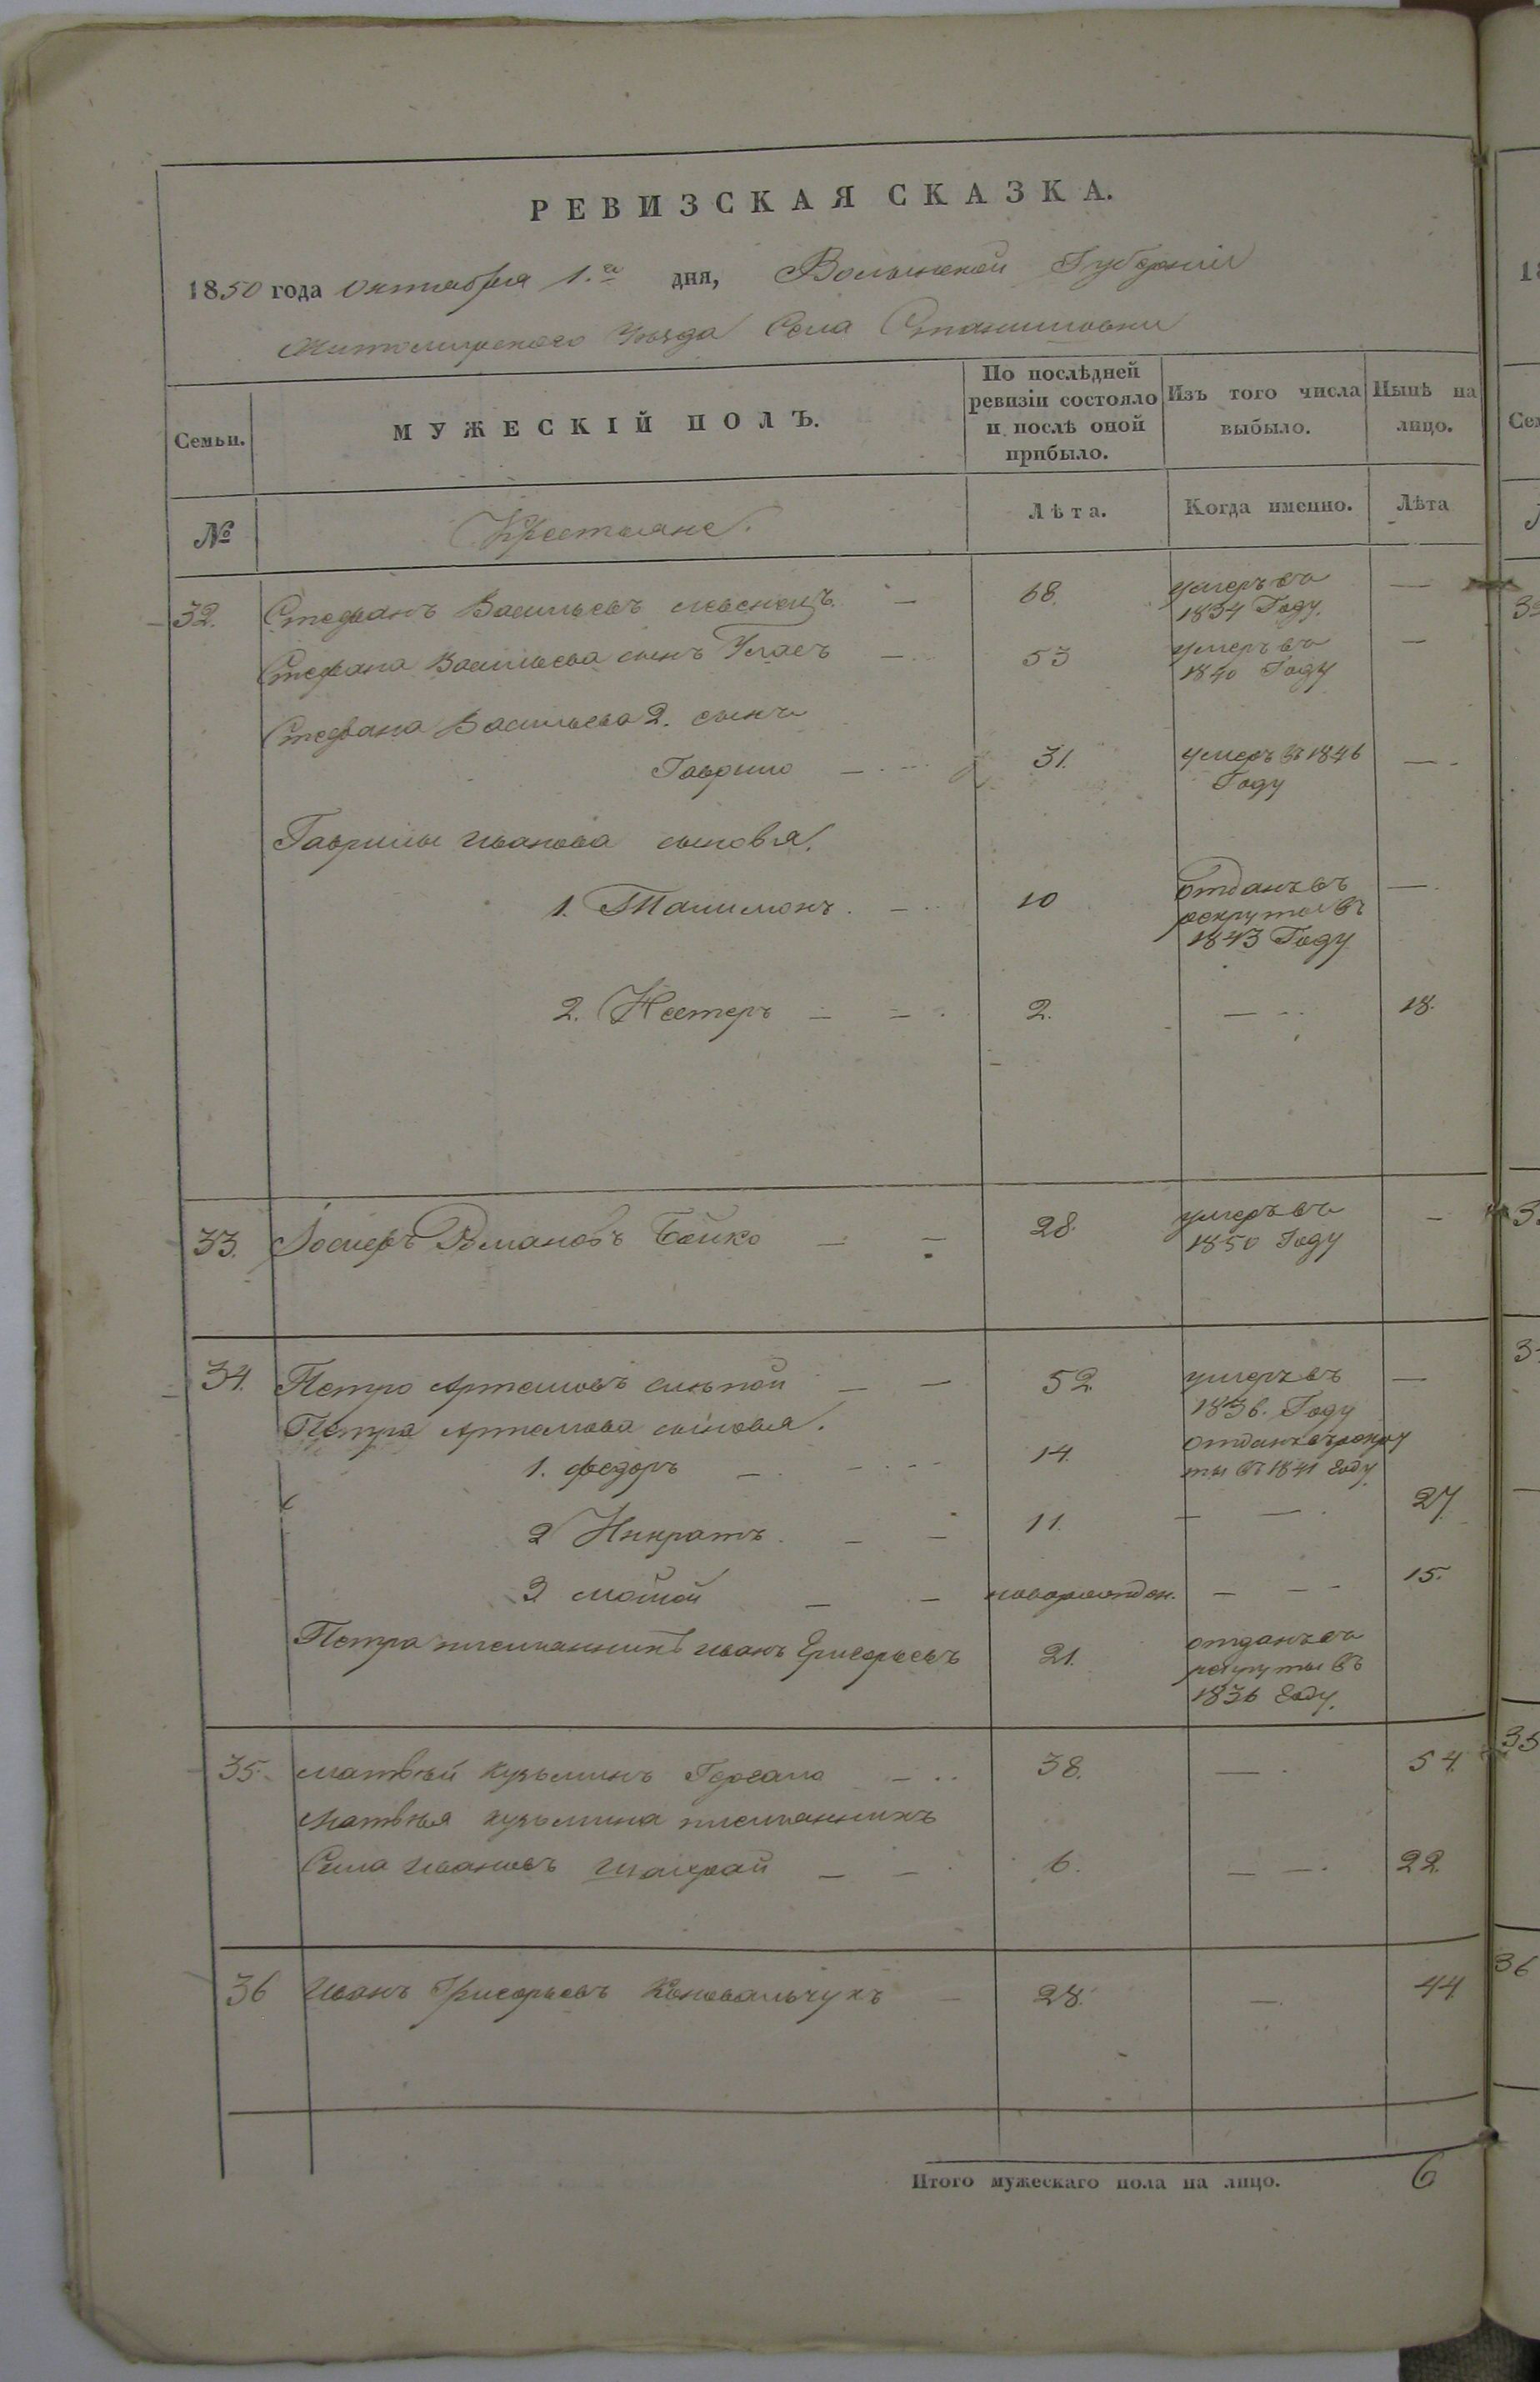 РЕВИЗСКАЯ СКАЗКА.
1850 года Октября 1.го дня, Волынской Губерніи
Житомирскаго Уѣзда Села Станишовки
Семьи.
МУЖЕСКІЙ ПОЛЪ.
По послѣдней ревизіи состояло и послѣ оной прибыло.
Изъ того числа выбыло.
Нынѣ на лицо.
№
Крестьяне.
Лѣта.
Когда именно.
Лѣта
32. Стефанъ Васильевъ — 68. умеръ въ 1834 Году. —
Стефана Васильева сынъ Уласъ — 53 умеръ въ 1840 Году —
Стефана Васильева 2. сынъ
Гаврило — 31. умеръ въ 1846 Году —
Гаврилы Иванова сыновья.
1. — 10 отданъ въ рекруты въ 1843 Году —
2. Нестеръ — 2. — 18.
33. Іосифъ Романовъ Бойко — 28. умеръ въ 1850 Году —
34. Петро Артемовъ слѣпой — 52. умеръ въ 1836. Году —
Петра Артемова сыновья.
1. Федоръ — 14. отданъ въ рекруты въ 1841 Году.
2 — 11. — 27.
3 — новорожден. — 15.
Петра племянникъ Иванъ Григорьевъ 21. отданъ въ рекруты въ 1836 Году.
35. Матвѣй Кузьминъ — 38. — 54.
Матвѣя Кузьмина племянникъ
Сила Ивановъ — 6. — 22.
36 Иванъ Григорьевъ Коновальчукъ — 28. — 44.
Итого мужескаго пола на лицо. 6